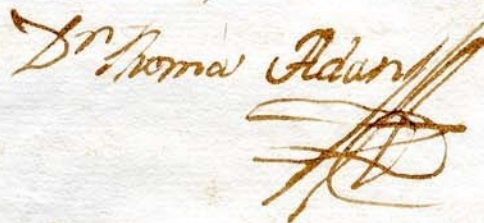 Dn Thoma Adan